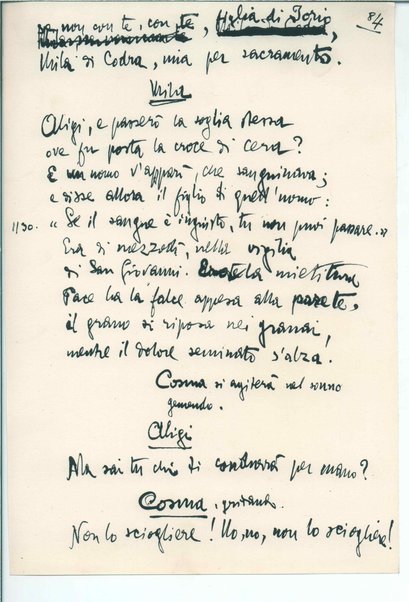 84
se non con te, con te, figlia di Jorio,
Mila di Codra, mia per sacramento.
Mila
Aligi, e passerò la soglia stessa
ove fu posta la croce di cera?
E un uomo v'apparì, che sanguinava;
e disse allora il figlio di quest'uomo:
1130. "Se il sangue è ingiusto, tu non puoi passare."
Era di mezzodì, nella vigilia
di San Giovanni. Era la mietitura
Pace ha la falce appesa alla parete,
il grano si riposa nei granai,
mentre il dolore seminato s'alza.
Cosma si agiterà nel sonno
gemendo.
Aligi
Ma sai tu chi ti condurrà per mano?
Cosma, gridando.
Non lo sciogliere! No, no, non lo sciogliere!